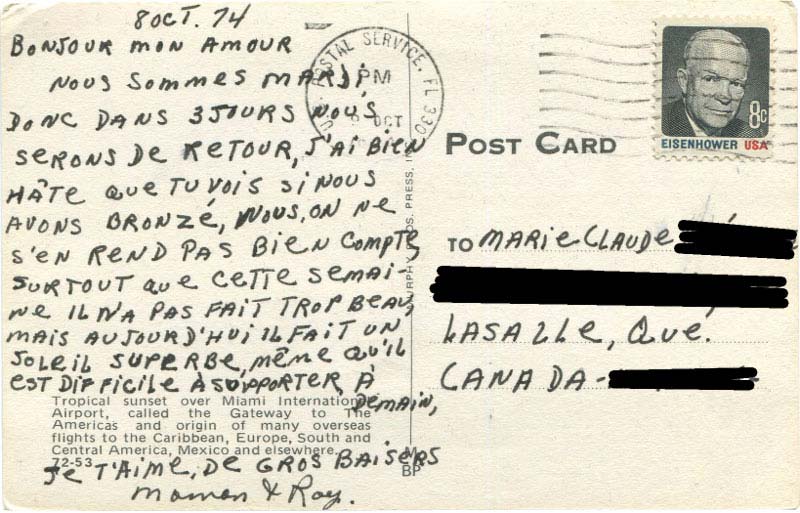 8 OCT. 74
BONJOUR MON AMOUR
NOUS SOMMES MARDI
DONC DANS 3 JOURS NOUS
SERONS DE RETOUR, J'AI BIEN
HÂTE QUE TU VOIS SI NOUS
AVONS BRONZÉ, NOUS, ON NE
S'EN REND PAS BIEN COMPTE,
SURTOUT QUE CETTE SEMAI-
NE IL N'A PAS FAIT TROP BEAU,
MAIS AUJOURD'HUI IL FAIT UN
SOLEIL SUPERBE, MÊME QU'IL
EST DIFFICILE À SUPPORTER, À
DEMAIN,
JE T'AIME, DE GROS BAISERS
Maman & Ray.
Tropical sunset over Miami International
Airport, called the Gateway to The
Americas and origin of many overseas
flights to the Caribbean, Europe, South and
Central America, Mexico and elsewhere.
72-53
M
BP
POSTAL SERVICE, FL 330
PM
OCT
MURPHY BROS. PRESS,
POST CARD
8c
EISENHOWER USA
TO MARIE CLAUDE
LASALLE, QUÉ.
CANADA-